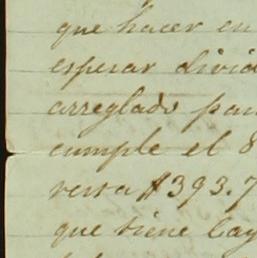 que hacer en
esperar divid
arreglado par
cumple el 8
versa $393.7
que tiene Cay